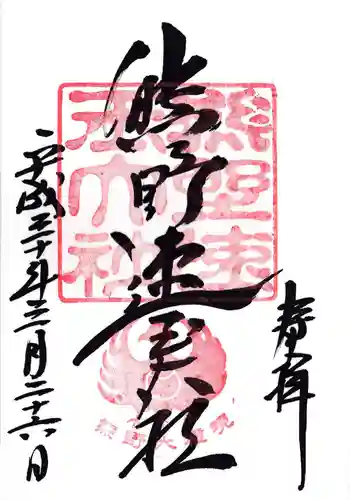 奉拝
熊野速玉社
平成三十年三月二十六日
熊野速
玉大社
熊野大権現